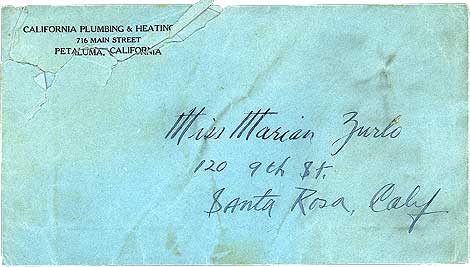 CALIFORNIA PLUMBING & HEATING
716 MAIN STREET
PETALUMA, CALIFORNIA
Miss Marian Zurlo
120 9th St.
Santa Rosa, Calif